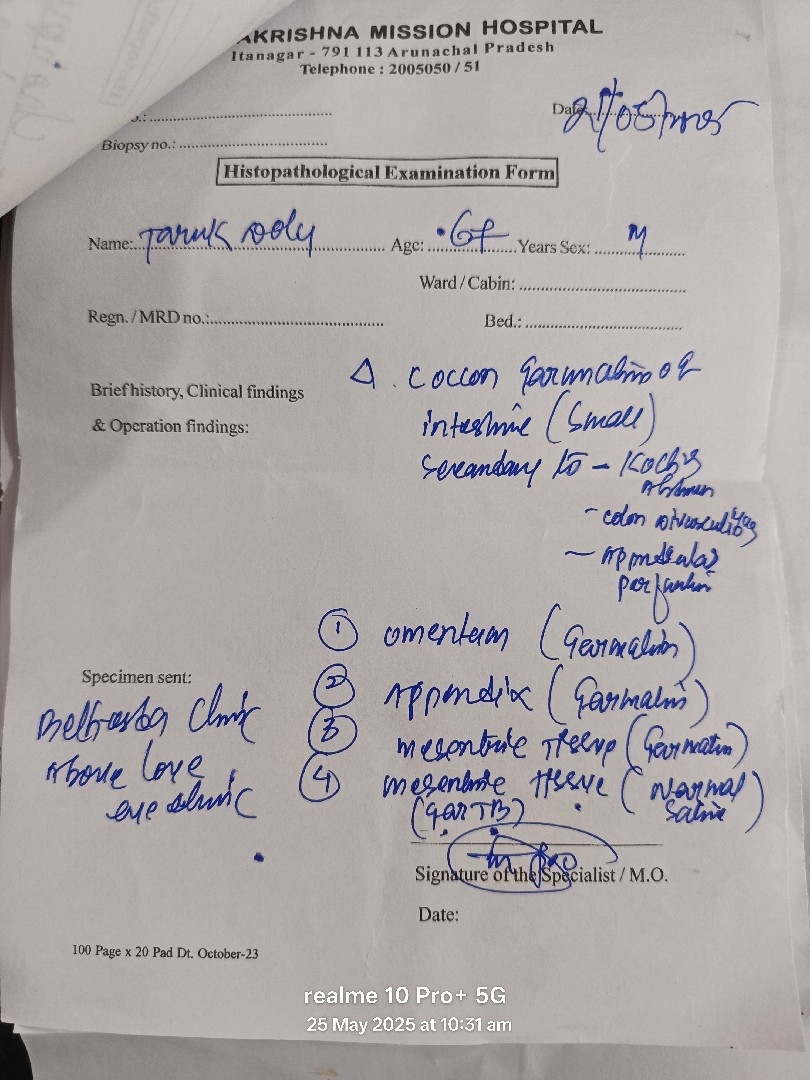 AKRISHNA MISSION HOSPITAL
Itanagar - 791 113 Arunachal Pradesh
Telephone : 2005050 / 51
Date
Biopsy no.:
Histopathological Examination Form
Name: Taruk Doly Age: 67 Years Sex: M
Ward / Cabin:
Regn. / MRD no.:
Bed.:
Brief history, Clinical findings
& Operation findings:
Δ. Coccon formation of
intestine (Small)
Secondary to - Koch's
Abdomen
- colon
- Appendicular
perforation
Specimen sent:
① omentum (Formalin)
② Appendix (Formalin)
③ mesentric Tissue (Formalin)
④ mesentric Tissue (Normal
Saline)
(for TB)
Clinic
Above Love
eye clinic
Signature of the Specialist / M.O.
Date:
100 Page x 20 Pad Dt. October-23
realme 10 Pro+ 5G
25 May 2025 at 10:31 am